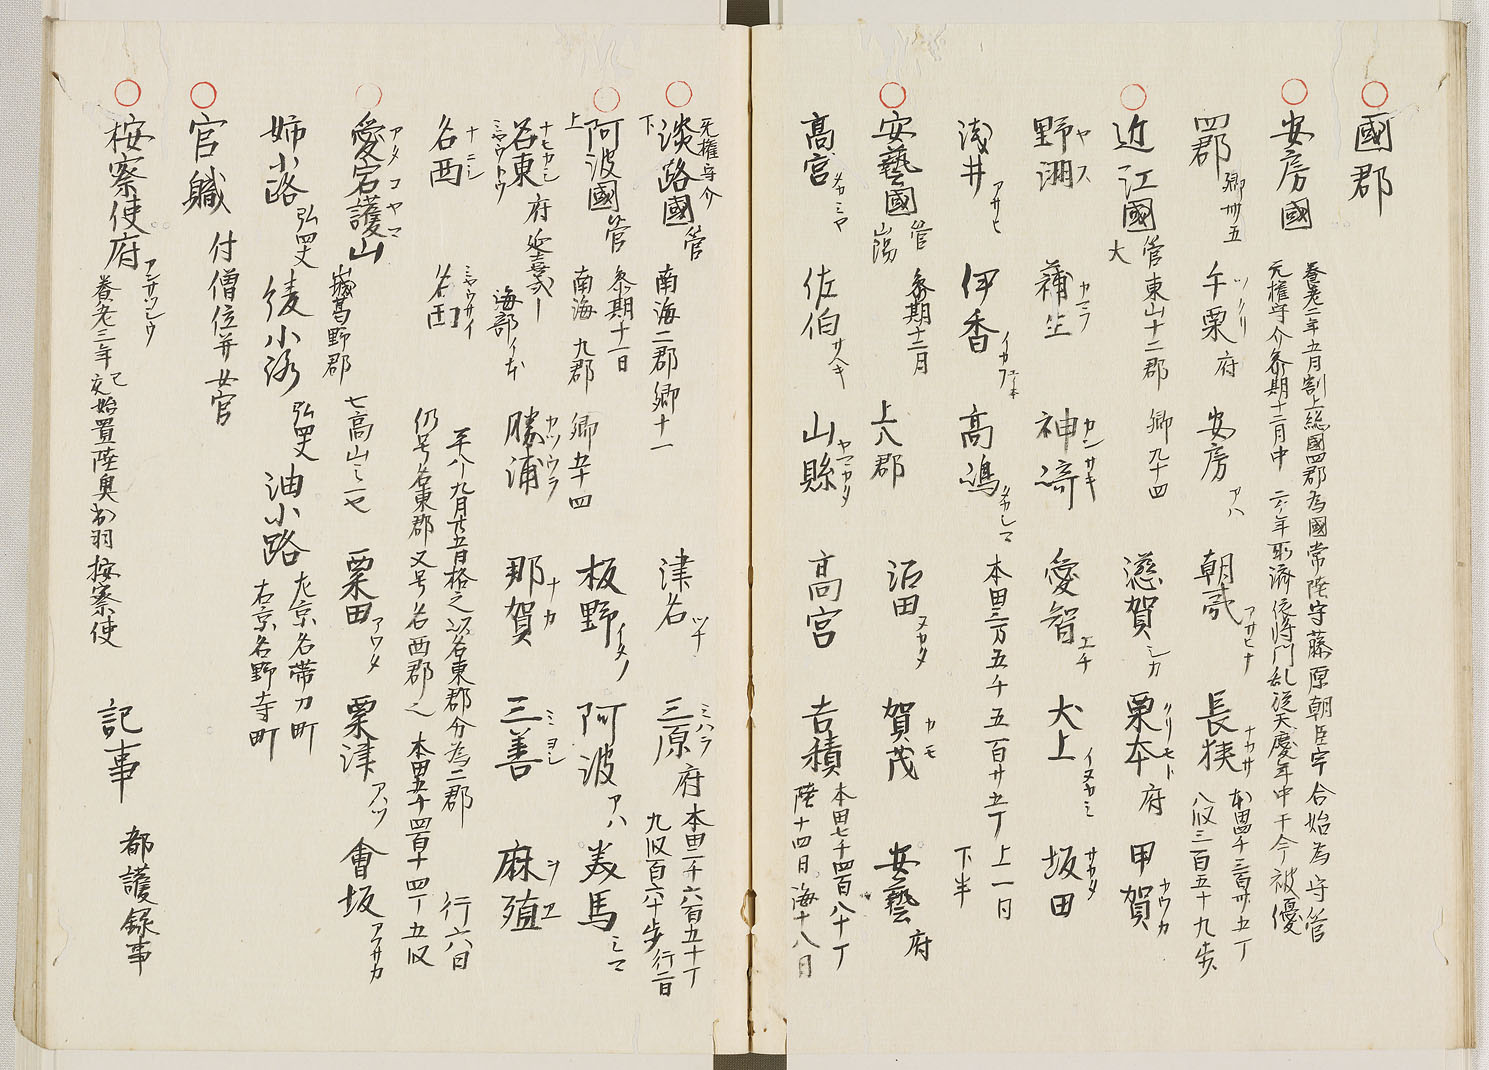 國郡
安房國
養老二年五月割上総國四郡為國常陸守藤原朝臣宇合始為守管
元権守介叅期十二月中
天慶年中于今被優
四郡 郷卅五
千栗 ツクリ
府
安房 アハ
朝夷 アサヒナ
長狹 ナカサ
本田四千三百卅五丁
八段三百五十九歩
近江國 管
大
東山十二郡
郷九十四
滋賀 シカ
栗本 クリモト
府
甲賀 カウカ
野洲 ヤス
蒲生 カマフ
神崎 カンサキ
愛智 エチ
犬上 イヌカミ
坂田 サカタ
浅井 アサヰ
伊香 イカコ
高嶋 タカシマ
本田三万五千五百廿五丁
上一日
下半
安藝國 管
山陽
叅期十二月
上八郡
沼田 ヌカタ
賀茂 カモ
安藝 府
高宮 タカミヤ
佐伯 サヘキ
山縣 ヤマカタ
高宮
吉積
本田七千四百八十丁
陸十四日 海十八日
元権守介
淡路國 管
下
南海二郡郷十一
津名 ツナ
三原 ミハラ
府
本田二千六百五十丁
九段百六十歩
行二日
阿波國 管
上
叅期十一日
南海 九郡
郷五十四
板野 イタノ
阿波 アハ
美馬 ミマ
名東 ナヒカシ
ミヤウトウ
府 延喜式
海部
勝浦 カツウラ
那賀 ナカ
三善 ミヨシ
麻殖 ヲヱ
名西 ナニシ
名西 ミヤウサイ
九月廿五日格云以名東郡分為二郡
仍号名東郡又号名西郡云
本田五千四百十四丁五段
行六日
愛宕護山 アタコヤマ
葛野郡
七高山之一也
粟田 アワタ
粟津 アハツ
會坂 アフサカ
姉小路 弘四丈
綾小路 弘四丈
油小路
左京名帯刀町
右京名野寺町
官職
付僧位并女官
按察使府 アンサツシフ
養老三年 始置陸奥出羽按察使
記事
都護録事